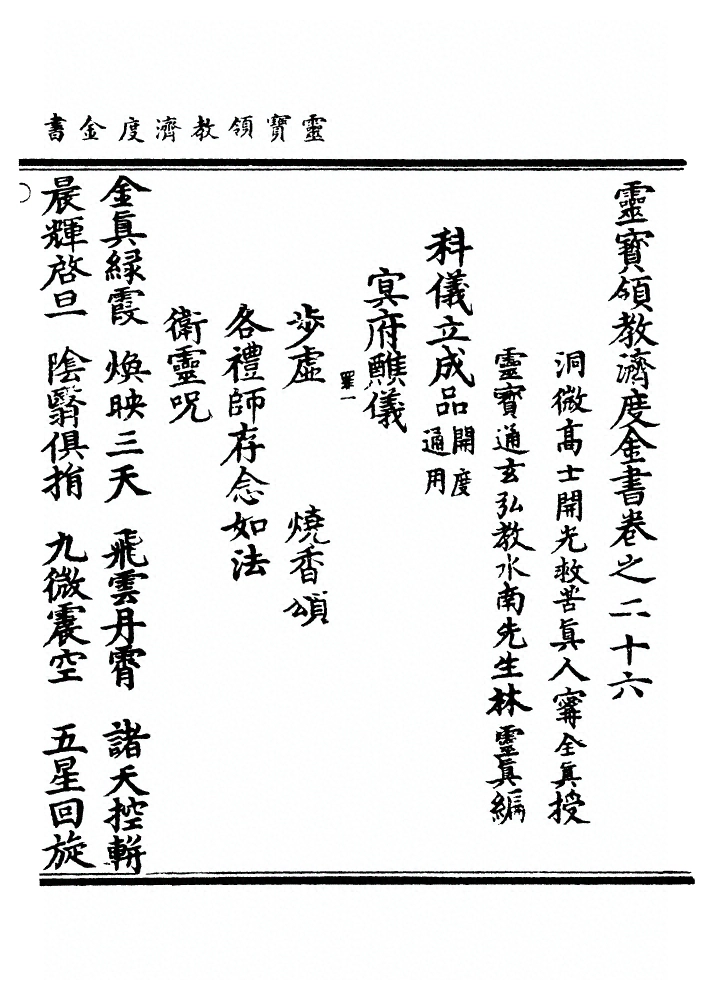 靈寶領教濟度金書
靈寶領教濟度金書卷之二十六
洞微高士開光救苦眞人寗全眞授
靈寶通玄弘教水南先生林靈眞編
科儀立成品 開度通用
冥府醮儀 罪一
步虛 燒香頌
各禮師存念如法
衛靈呪
金眞緑霞 煥映三天 飛雲丹霄 諸天控軿
晨輝啓旦 陰翳俱捐 九微震空 五星回旋